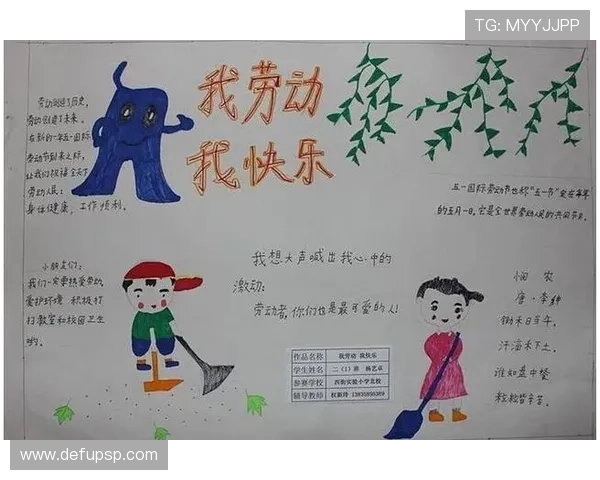 TG: MYYJJPP
我劳动
我快乐
劳动创造了历史,
劳动创造了未来,
在新的一年五一国际
劳动节到来之际,
让我们祝福全天下
劳动人民:
身体健康,工作顺利。
五一国际劳动节也称“五一节”定在每年
的五月一日。它是全世界劳动人民的共同节日。
小朋友们:
我们一定要热爱劳动,
爱护环境 积极打
扫教室和校园卫生
哟。
我想大声喊出我心中的
激动:
劳动者,你们也是最可爱的人!
悯 农
唐·李绅
锄禾日当午,
汗滴禾下土。
谁知盘中餐
粒粒皆辛苦。
作品名称 我劳动 我快乐
学生姓名 二(1)班 杨艺卓
参赛学校 西街实验小学北校
辅导教师
www.defupsp.com